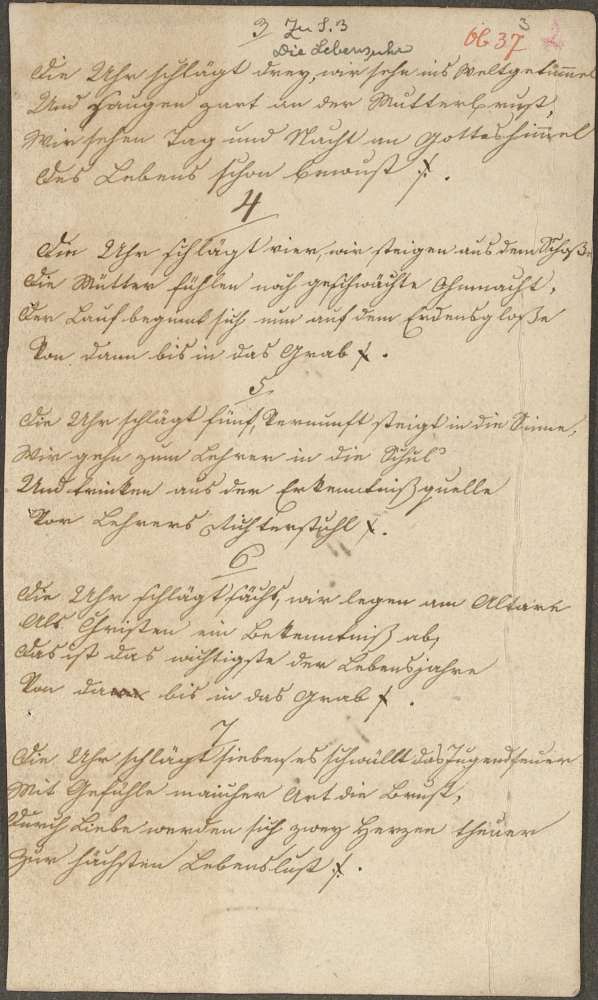 3 Zu S. 3
3
Die Lebensuhr
66 37
Die Uhr schlägt drey, wir sehn ins Weltgetümmel
Und saugen zart an der Mutterbrust,
Wir sehen Tag und Nacht an Gotteshimmel
Des Lebens schon bewust :/: .
4
Die Uhr schlägt vier, wir steigen aus dem Schoße
Die Mütter fühlen noch geschwächte Ohnmacht,
Der Lauf beginnt sich nun auf dem Erdensgloße
Von dann bis in das Grab :/: .
5
Die Uhr schlägt fünf, Vernunft steigt in die Sinne,
Wir gehn zum Lehrer in die Schul
Und trinken aus der Erkenntnißquelle
Vor Lehrers Richterstuhl :/: .
6
Die Uhr schlägt sächs, wir legen am Altare
Als Christen ein Bekenntniß ab,
Das ist das wichtigste der Lebensjahre
Von da bis in das Grab :/: .
7
Die Uhr schlägt sieben, es schwüllt das Jugendfeuer
Mit Gefühle mancher Art die Brust,
Durch Liebe werden sich zwey Herzen theuer
Zur höchsten Lebenslust :/: .